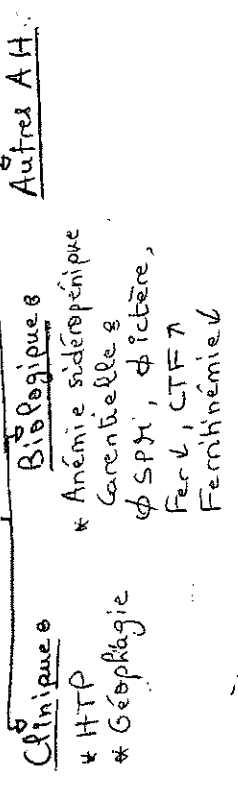 Cliniques
* HTP
* Géophagie
Biologiques
* Anémie sidéropénique
Carentielles
∅ SPM, ∅ ictère,
Fer↓, CTF↗
Ferritinémie↓
Autres AH.